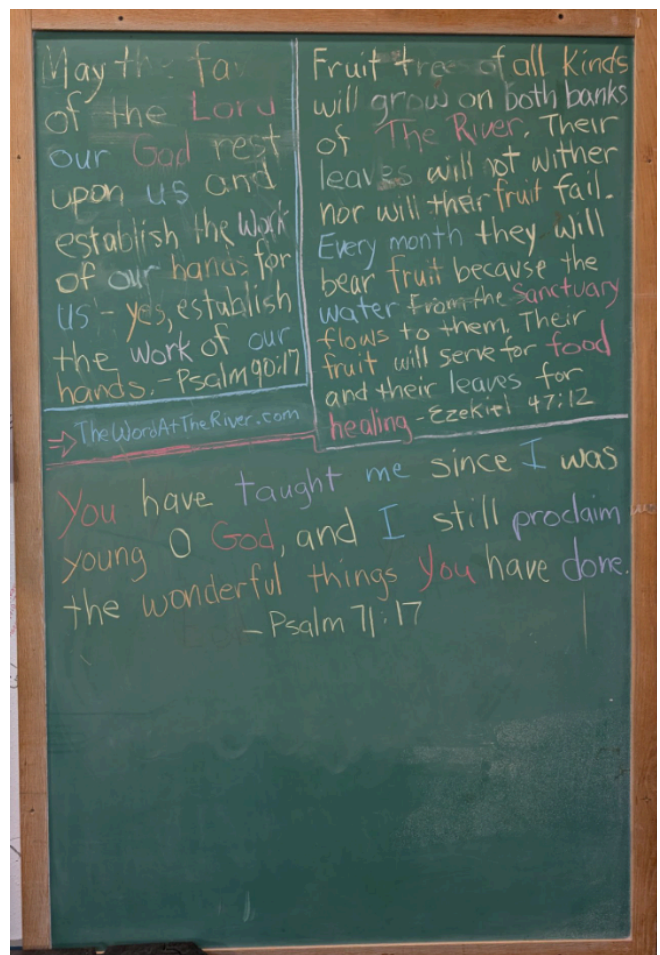 May the fa
of the Lord
our God rest
upon us and
establish the work
of our hands for
us - yes, establish
the work of our
hands. - Psalm 90:17
⇒ TheWordAtTheRiver.com
Fruit tree of all kinds
will grow on both banks
of The River. Their
leaves will not wither
nor will their fruit fail.
Every month they will
bear fruit because the
water From the Sanctuary
flows to them. Their
fruit will serve for food
and their leaves for
healing - Ezekiel 47:12
You have taught me since I was
young O God, and I still proclaim
the wonderful things You have done.
- Psalm 71:17